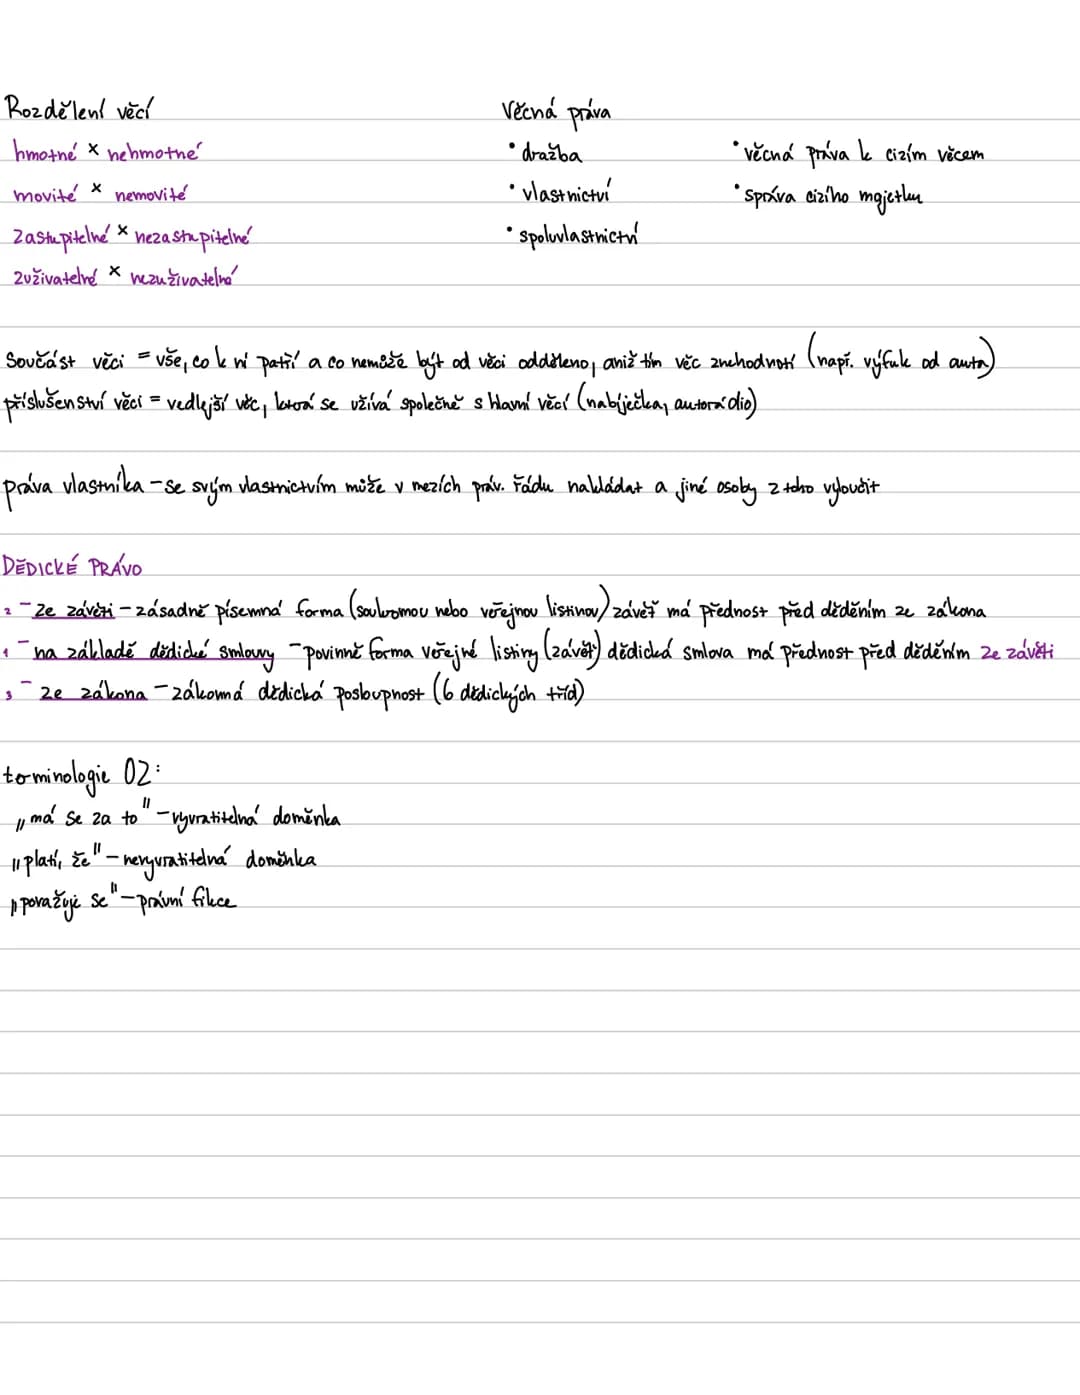 Rozdělení věcí
hmotné × nehmotné
movité × nemovité
zastupitelné × nezastupitelné
zuživatelné × nezuživatelné
Věcná práva
• dražba
• vlastnictví
• spoluvlastnictví
• věcná práva k cizím věcem
• správa cizího majetku
Součást věci = vše, co k ní patří a co nemůže být od věci odděleno, aniž tím věc znehodnotí (např. výfuk od auta)
příslušenství věci = vedlejší věc, která se užívá společně s hlavní věcí (nabíječka, autorádio)
práva vlastníka - se svým vlastnictvím může v mezích práv. řádu nakládat a jiné osoby z toho vyloučit
DĚDICKÉ PRÁVO
2 - ze závěti - zásadně písemná forma (soukromou nebo veřejnou listinou) závěť má přednost před děděním ze zákona
1 - na základě dědické smlouvy - povinně forma veřejné listiny (závěť) dědická smlova má přednost před děděním ze závěti
3 - ze zákona - zákonná dědická posloupnost (6 dědických tříd)
terminologie OZ:
„má se za to" - vyvratitelná doměnka
„platí, že" - nevyvratitelná doměnka
„považuje se" - právní fikce